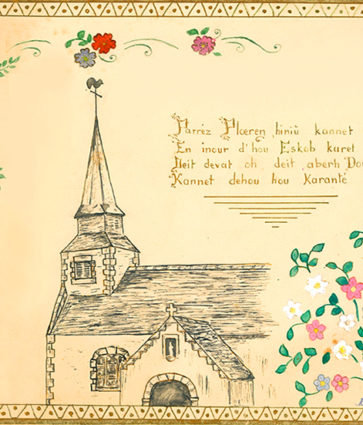 Parréz Plœren hiniù kannet
En inour d'hou Eskob karet
Deit devat oh, deit aberh Do
Kannet dehou hou karanté